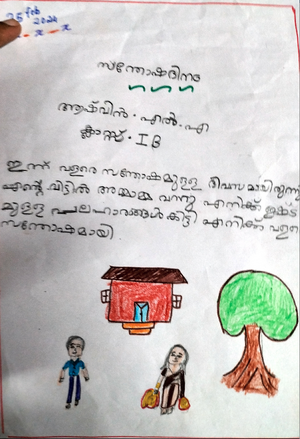 25 Feb
2024
സന്തോഷദിനം
ആഷ്‌വിൻ . എൽ . എ
ക്ലാസ്സ് . I B
ഇന്ന് വളരെ സന്തോഷമുള്ള ദിവസമായിരുന്നു
എന്റെ വീട്ടിൽ അമ്മമ്മ വന്നു എനിക്ക് ഇഷ്ട
മുള്ള പലഹാരങ്ങൾ കിട്ടി എനിക്ക് വളരെ
സന്തോഷമായി